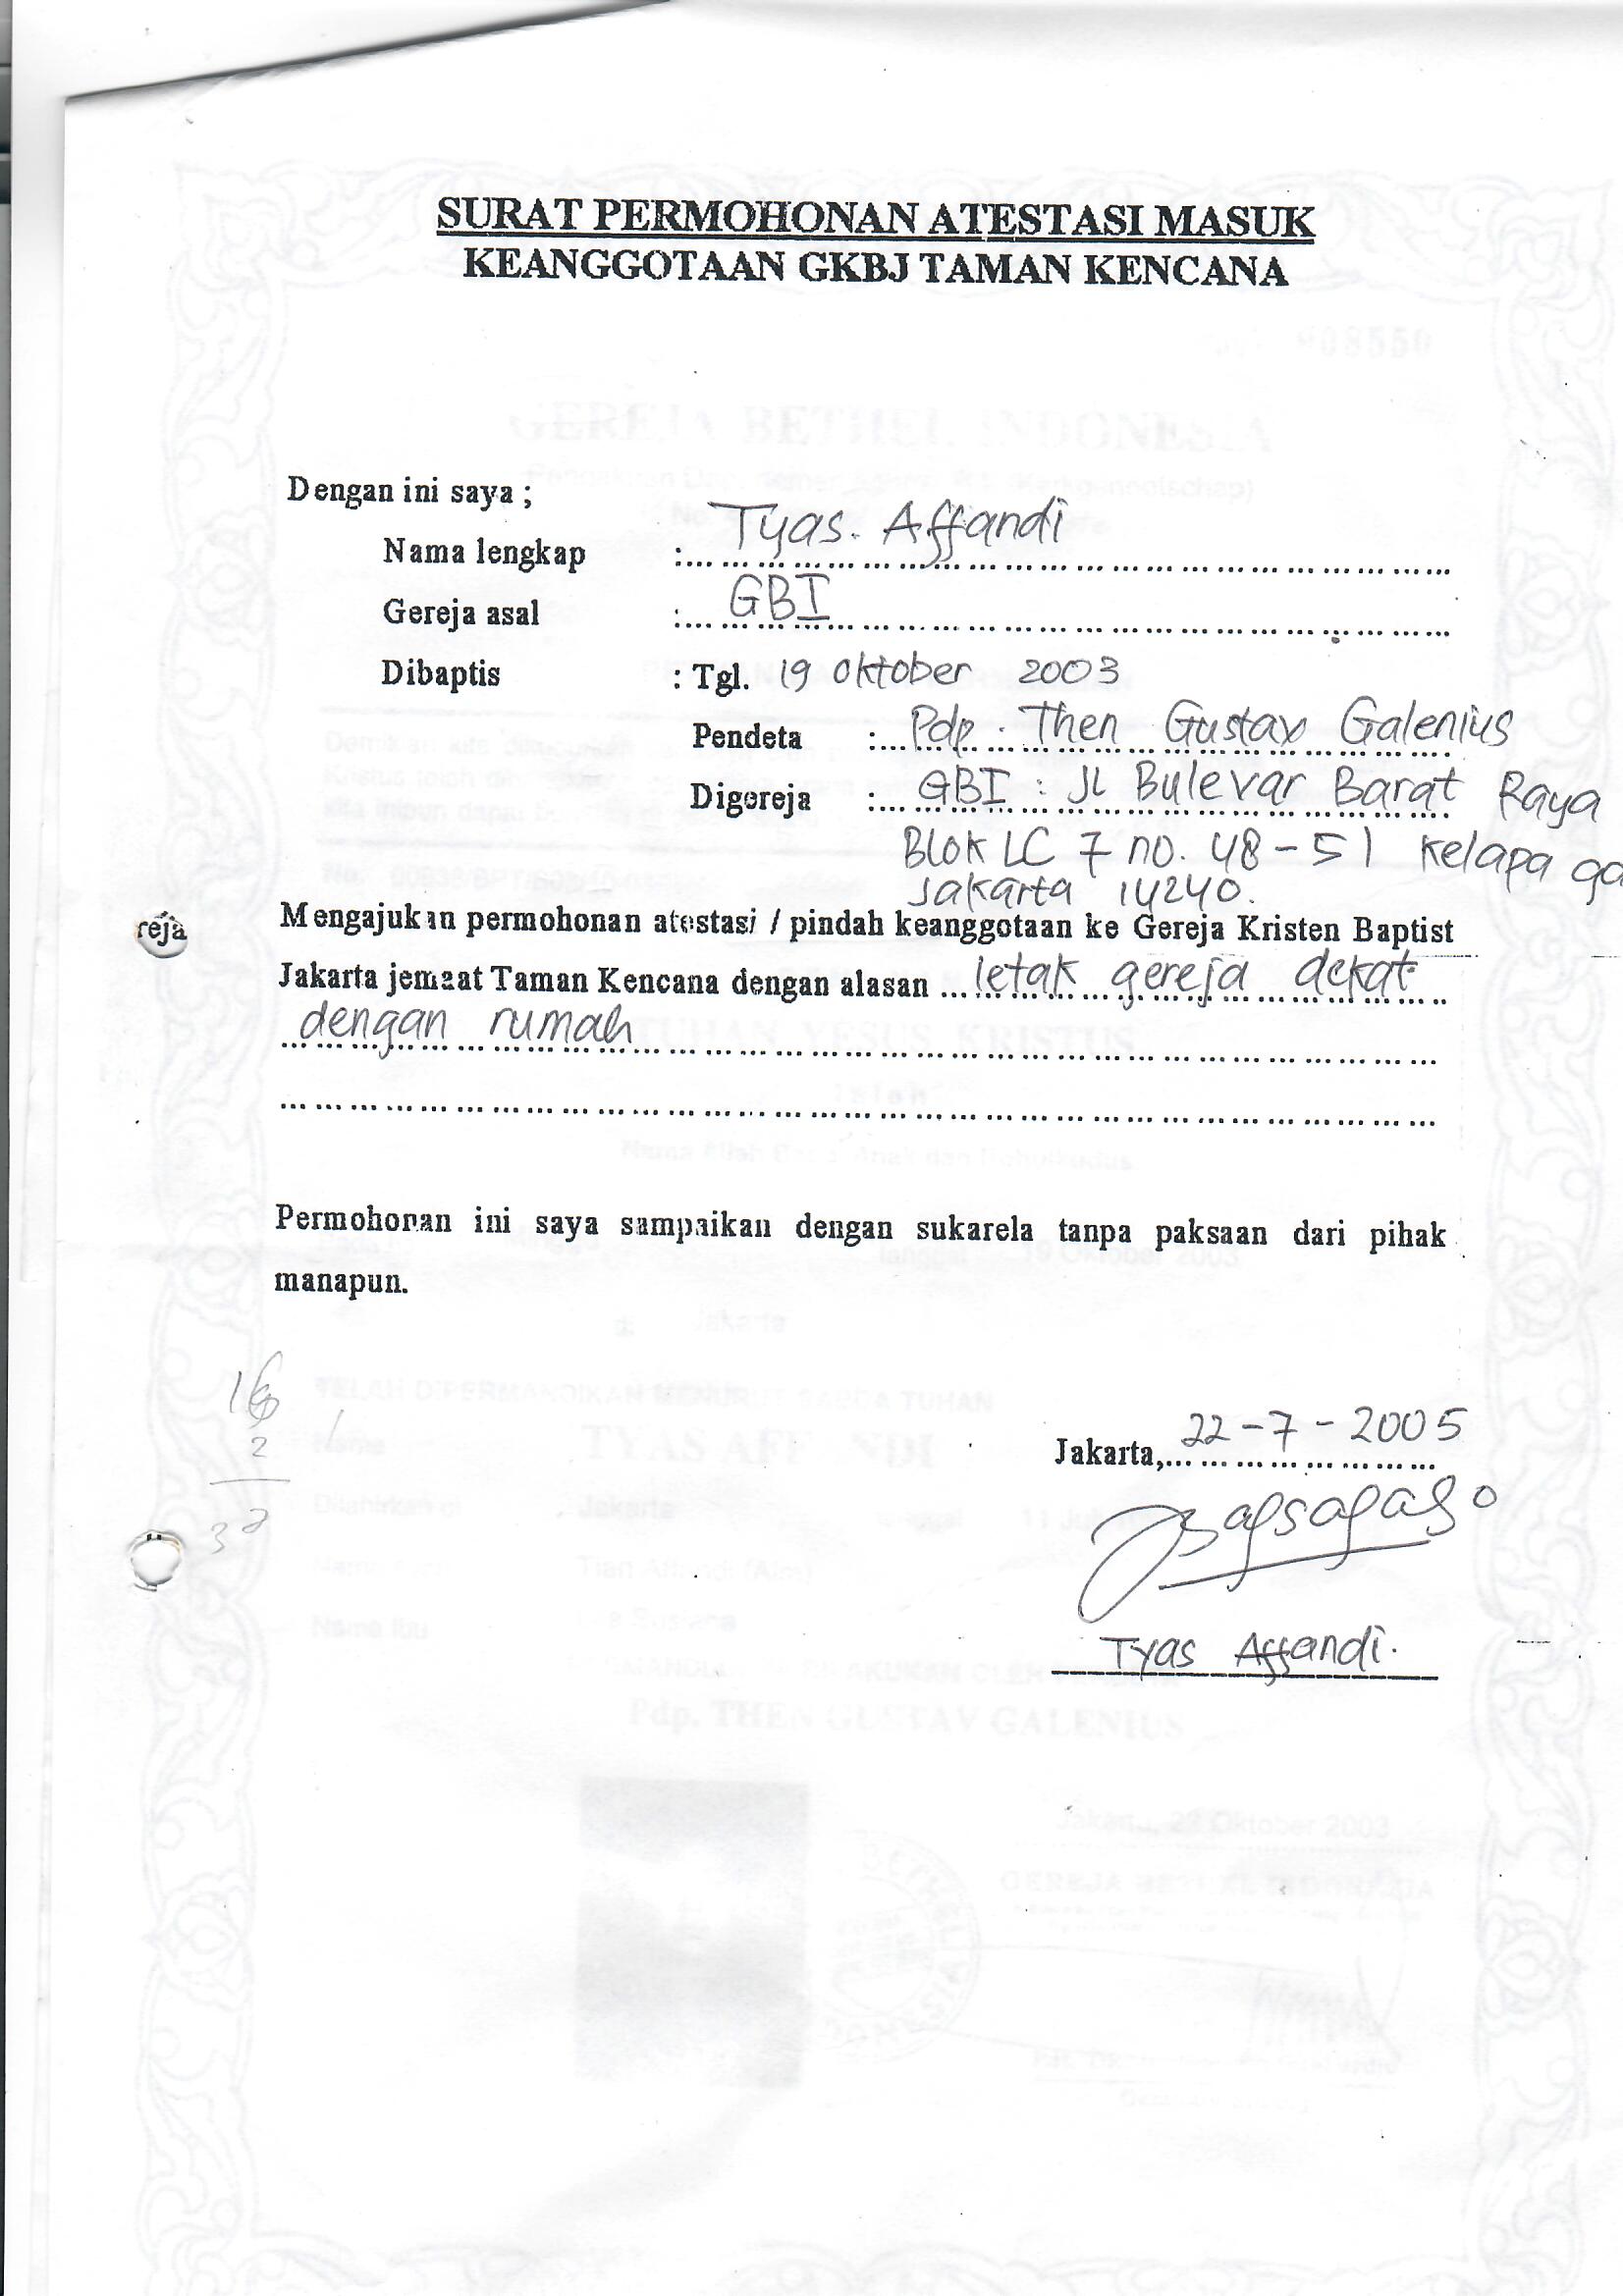 SURAT PERMOHONAN ATESTASI MASUK
KEANGGOTAAN GKBJ TAMAN KENCANA
Dengan ini saya ;
Nama lengkap : Tyas. Affandi
Gereja asal : GBI
Dibaptis : Tgl. 19 oktober 2003
Pendeta : Pdp. Then Gustav Galenius
Digereja : GBI : JL Bulevar Barat Raya
Blok LC 7 no. 48 - 51 Kelapa ga
Jakarta 14240.
reja
Mengajukan permohonan atestasi / pindah keanggotaan ke Gereja Kristen Baptist
Jakarta jemaat Taman Kencana dengan alasan letak gereja dekat
dengan rumah
Permohonan ini saya sampaikan dengan sukarela tanpa paksaan dari pihak
manapun.
2
32
Jakarta, 22-7-2005
Tyas Affandi.